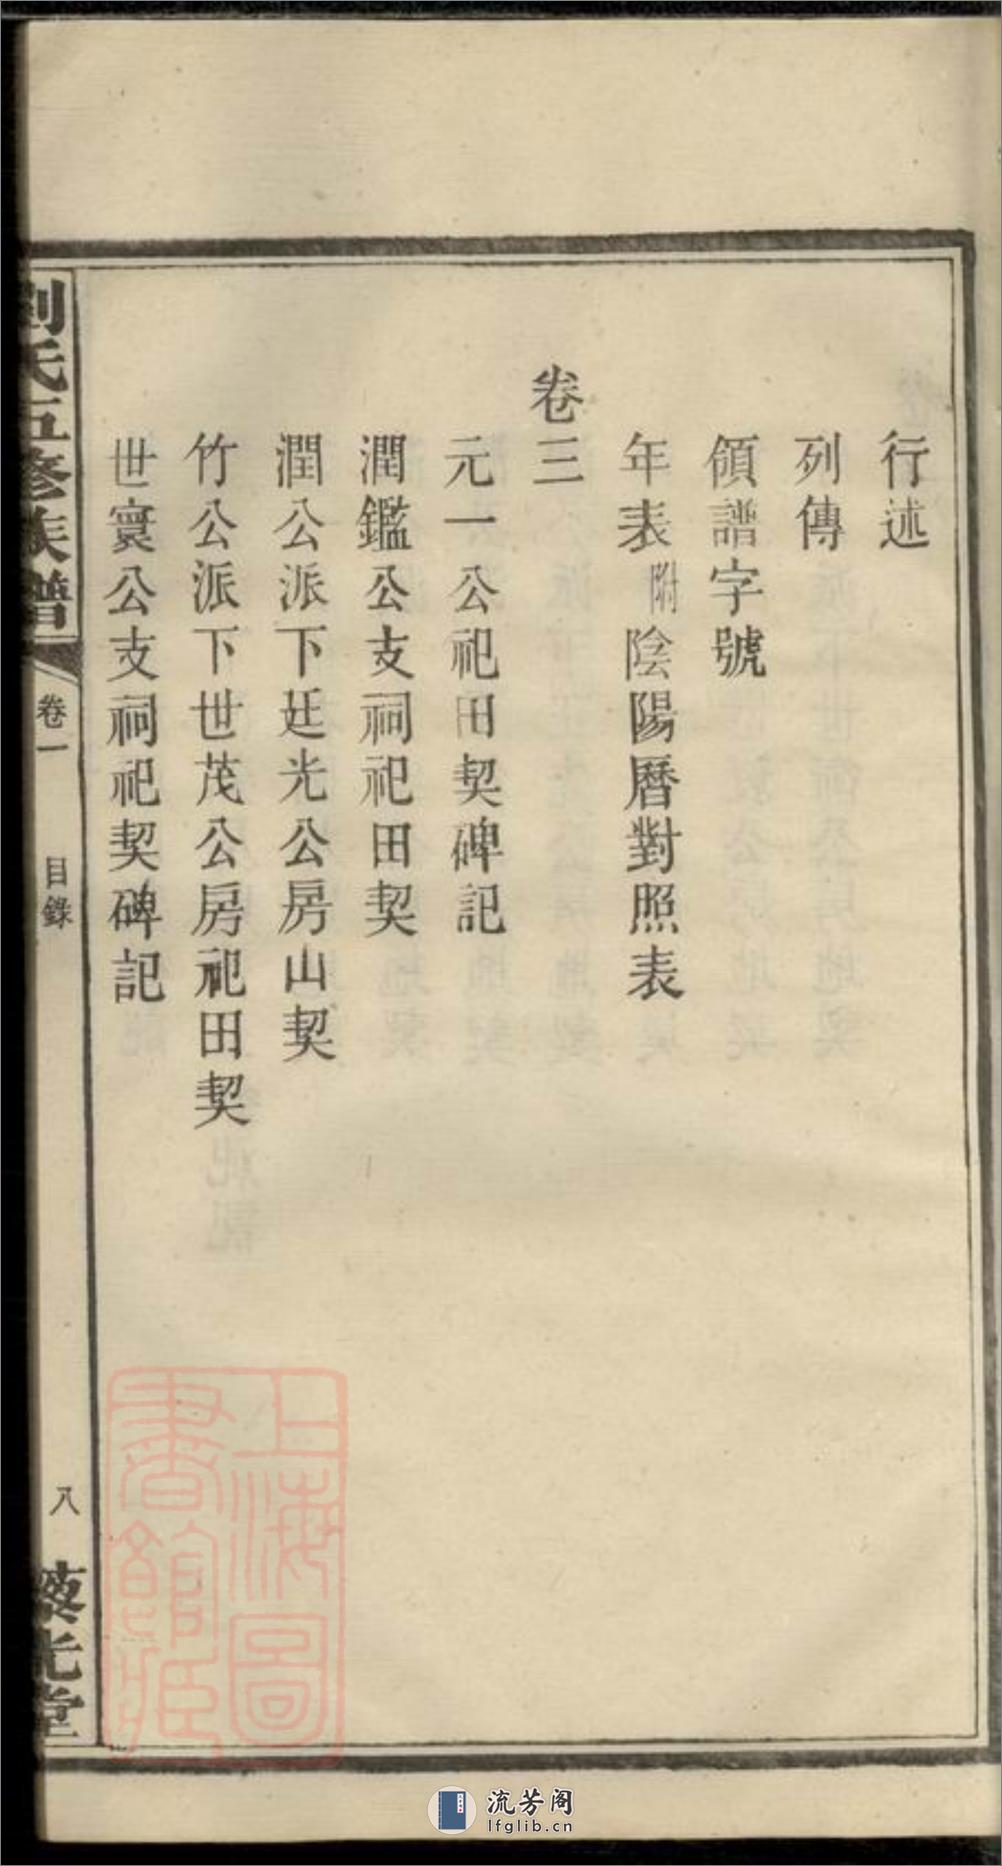 行述
列傳
領譜字號
年表附陰陽曆對照表
卷三
元一公祀田契碑記
潤鑑公支祠祀田契
潤公派下廷光公房山契
竹公派下世茂公房祀田契
世寰公支祠祀契碑記
劉氏五修族譜
卷一
目錄
八
光堂
上海圖書館藏
流芳阁
lfglib.cn